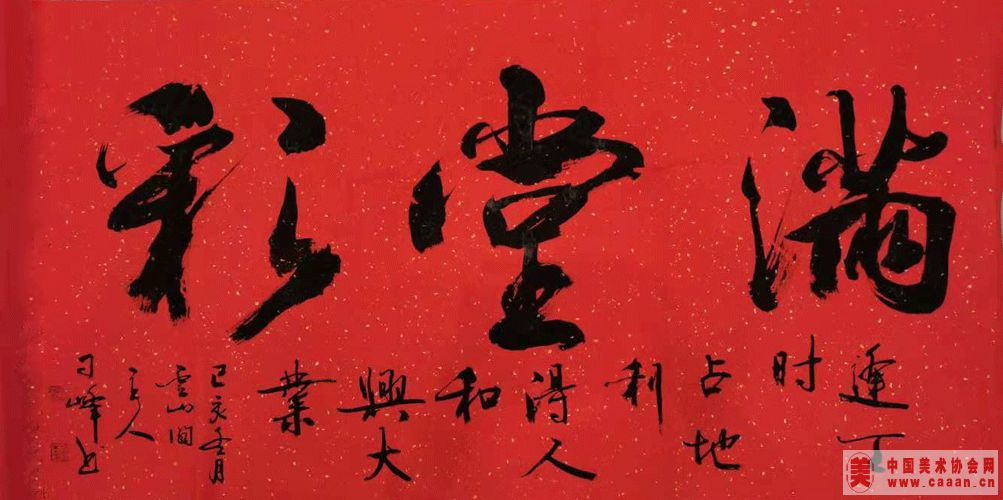 满堂彩
逢
时
占地
利
得人
和
興大
業
己亥冬月
雲山
主人
峰书
美
中国美术协会网
www.caaan.cn